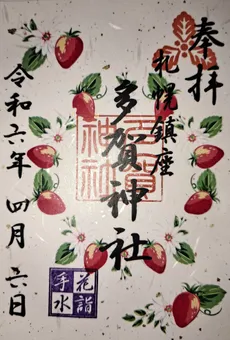 奉拝
札幌鎮座
多賀神社
多賀
神社
令和六年 四月 六日
花詣
手水